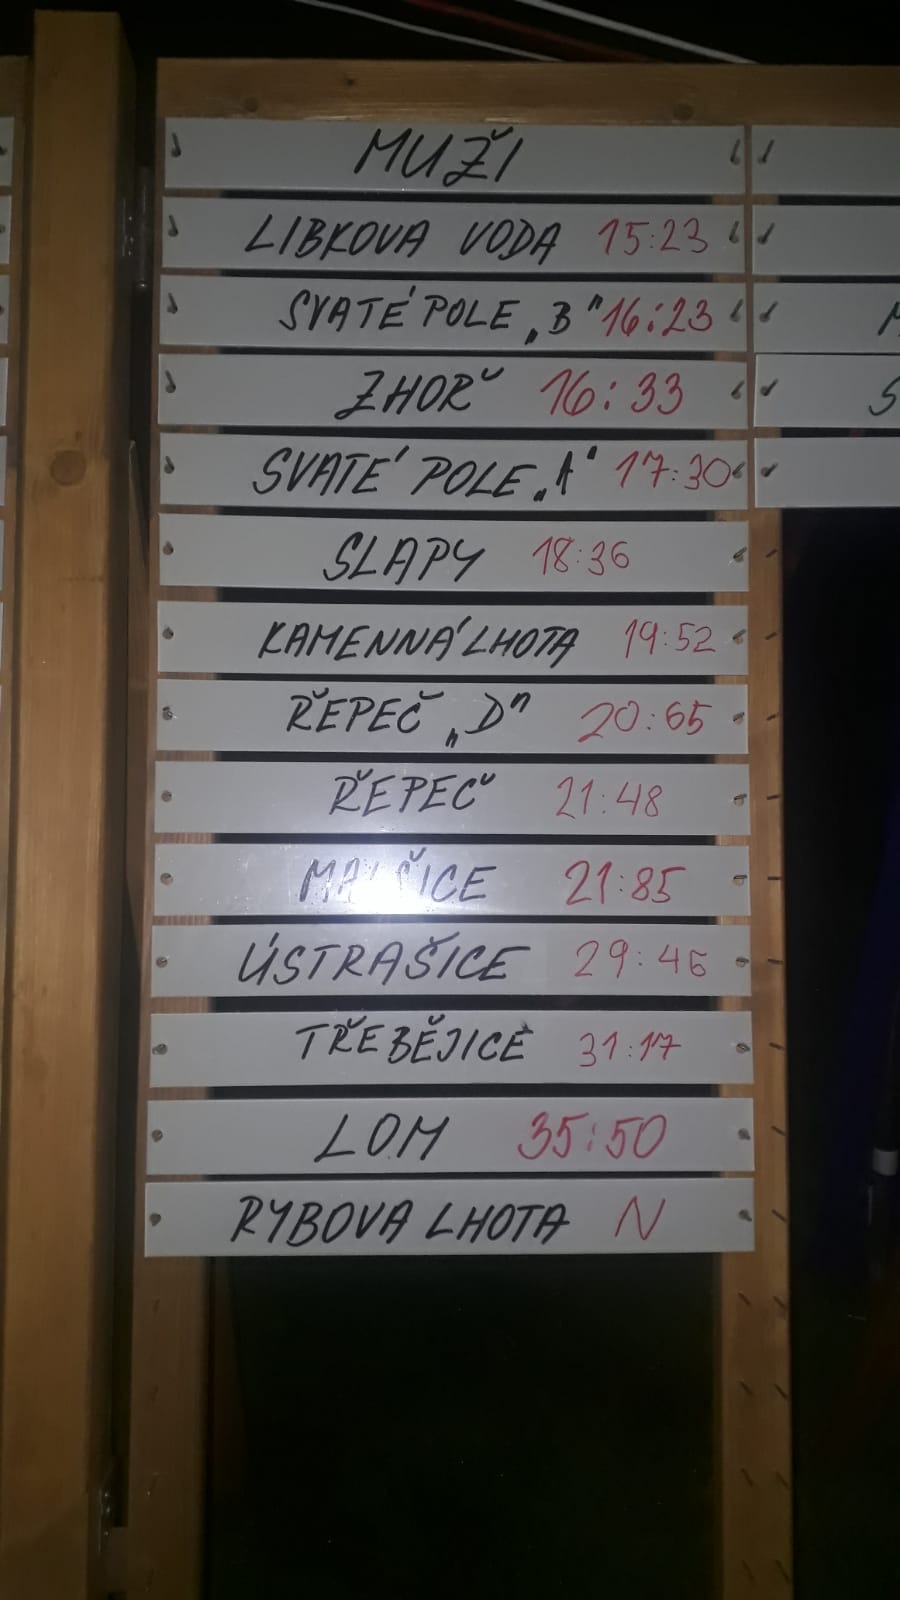 MUŽI
LIBKOVA VODA 15:23
SVATÉ POLE „B" 16:23
ZHOŘ 16:33
SVATÉ POLE „A" 17:30
SLAPY 18:36
KAMENNÁ LHOTA 19:52
ŘEPEČ „D" 20:65
ŘEPEČ 21:48
MALŠICE 21:85
ÚSTRAŠICE 29:46
TŘEBĚJICE 31:17
LOM 35:50
RYBOVA LHOTA N